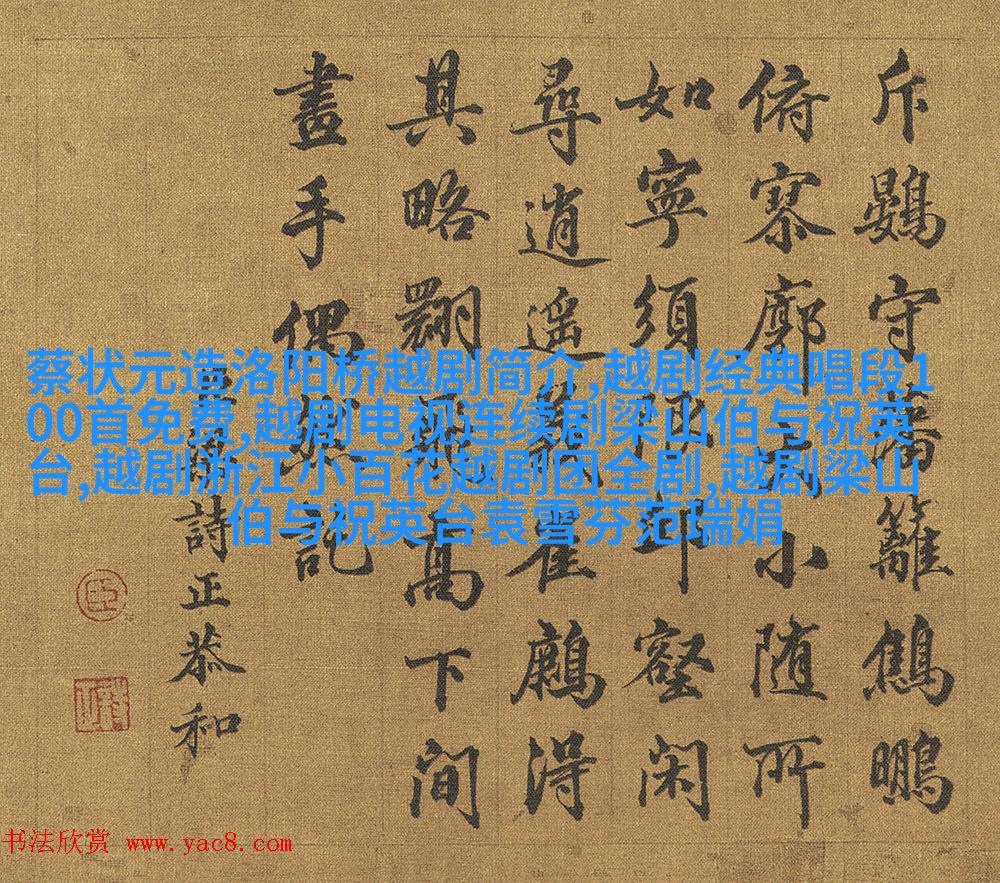 斥鷃守藩籬鷦鵬
俯寥廓小随所
如寧須壑閑
尋逍遥雀得
其略翾高下間
畫手偶記
詩正恭和
蔡状元造洛阳桥越剧简介,越剧经典唱段1
00首免费,越剧电视连续剧梁山伯与祝英
台,越剧浙江小百花越剧团全剧,越剧梁山
伯与祝英台袁雪芬范瑞娟
书法欣赏 www.yac8.com